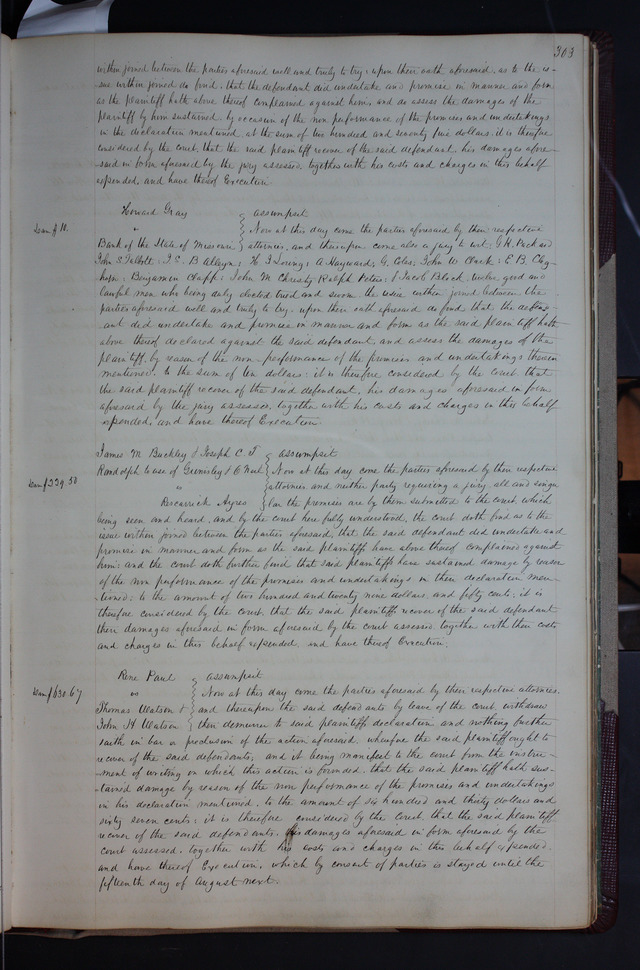 303
within joined between the parties aforesaid well and truly to try; upon their oath aforesaid, as to the is-
sue within joined do find, that the defendant did undertake and promise in manner and form
as the plaintiff hath above thereof complained against him, and do assess the damages of the
plaintiff by him sustained by occasion of the non performance of the promises and undertakings
in the declaration mentioned at the sum of two hundred and seventy two dollars; it is therefore
considered by the court, that the said plaintiff recover of the said defendant, his damages afore-
said in form aforesaid by the jury assessed, together with his costs and charges in this behalf
expended, and have thereof Execution.
Howard Gray } assumpsit
Dam $10. vs Now at this day come the parties aforesaid by their respective
Bank of the State of Missouri attornies, and thereupon come also a jury to wit, G. K. Packard
John S. Talbott; B Alleyn; A Hayward; G. Coles; John W Clark; E B. Clag-
horn; Benjamin Clapp; John M Christy Ralph Peter; & Jacob Block, twelve good and
lawful men who being duly elected tried and sworn the issue within joined between the
parties aforesaid well and truly to try, upon their oath aforesaid do find that the defend-
ant did undertake and promise in manner and form as the said plaintiff hath
above thereof declared against the said defendant, and assess the damages of the
plaintiff, by reason of the non-performance of the promises and undertakings therein
mentioned, to the sum of ten dollars; it is therefore considered by the court that
the said plaintiff recover of the said defendant, his damages aforesaid in form
aforesaid by the jury assessed, together with his costs and charges in this behalf
expended, and have thereof Execution.
James M Buckley & Joseph C. T } assumpsit
Randolph to use of Grimsley & O'Neil Now at this day come the parties aforesaid by their respective
Dam $229.50 vs attornies and neither party requiring a jury, all and singu-
Roscarrick Ayres lar the premises are by them submitted to the court, which
being seen and heard, and by the court here fully understood, the court doth find as to the
issue within joined between the parties aforesaid, that the said defendant did undertake and
promise in manner and form as the said plaintiffs have above thereof complained against
him; and the court doth further find that said plaintiffs have sustained damage by reason
of the non performance of the promises and undertakings in their declaration men-
-tioned; to the amount of two hundred and twenty nine dollars and fifty cents; it is
therefore considered by the court that the said plaintiffs recover of the said defendant
their damages aforesaid in form aforesaid by the court assessed together with their costs
and charges in this behalf expended and have thereof Execution.
Rene Paul } assumpsit
Dam $630.67 vs Now at this day come the parties aforesaid by their respective attornies
Thomas Watson & and thereupon the said defendants by leave of the court, withdraw
John H Watson their demurrer to said plaintiffs declaration and nothing further
saith in bar or preclusion of the action aforesaid, wherefore the said plaintiff ought to
recover of the said defendants; and it being manifest to the court from the instru-
-ment of writing on which this action is founded, that the said plaintiff hath sus-
-tained damage by reason of the non performance of the promises and undertakings
in his declaration mentioned, to the amount of six hundred and thirty dollars and
sixty seven cents; it is therefore considered by the court that the said plaintiff
recover of the said defendants, his damages aforesaid in form aforesaid by the
court assessed, together with his costs and charges in this behalf expended
and have thereof Execution, which by consent of parties is stayed until the
fifteenth day of August next.